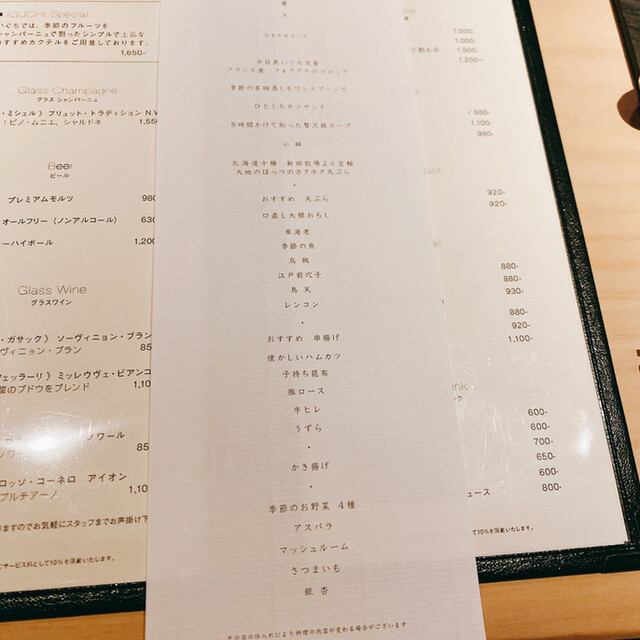 IGUCHI Special
ぐちでは、季節のフルーツを
シャンパーニュで割ったシンプルで上品な
おすすめカクテルをご用意しております。
1,650-
Glass Champagne
グラス シャンパーニュ
・ミシェル》 ブリュット・トラディション N.V
：ピノ・ムニエ、シャルドネ 1,550
Beer
ビール
プレミアムモルツ 980
オールフリー（ノンアルコール） 630
ーハイボール 1,200
Glass Wine
グラスワイン
・ガサック》 ソーヴィニョン・ブラン
ヴィニョン・ブラン 85
フェッラーリ》 ミッレウヴェ・ビアンコ
のブドウをブレンド 1,10
ノワール
85
ロッソ・コーネロ アイオン
プルチアーノ 1,10
ますのでお気軽にスタッフまでお声掛け下
サービス料として10%を頂戴いたします。
おまかせコース
中目黒いぐち定番
フランス産 フォアグラのコロッケ
季節の茶碗蒸しをワンスプーンで
ひとくちカツサンド
8時間かけて取った贅沢鶏スープ
小鉢
北海道十勝 新田牧場より空輸
大地のほっぺのホクホク天ぷら
・
おすすめ 天ぷら
口直し大根おろし
車海老
季節の魚
烏賊
江戸前穴子
鳥天
レンコン
・
おすすめ 串揚げ
懐かしいハムカツ
子持ち昆布
豚ロース
牛ヒレ
うずら
・
かき揚げ
・
季節のお野菜 4種
アスパラ
マッシュルーム
さつまいも
銀杏
その日の仕入れにより料理の内容が変わる場合がございます
1,000-
1,500-
1,200-
880-
1,100-
980-
920-
920-
880-
880-
930-
880-
920-
1,100-
600-
600-
700-
650-
600-
ュース 800-
て10%を頂戴いたします。